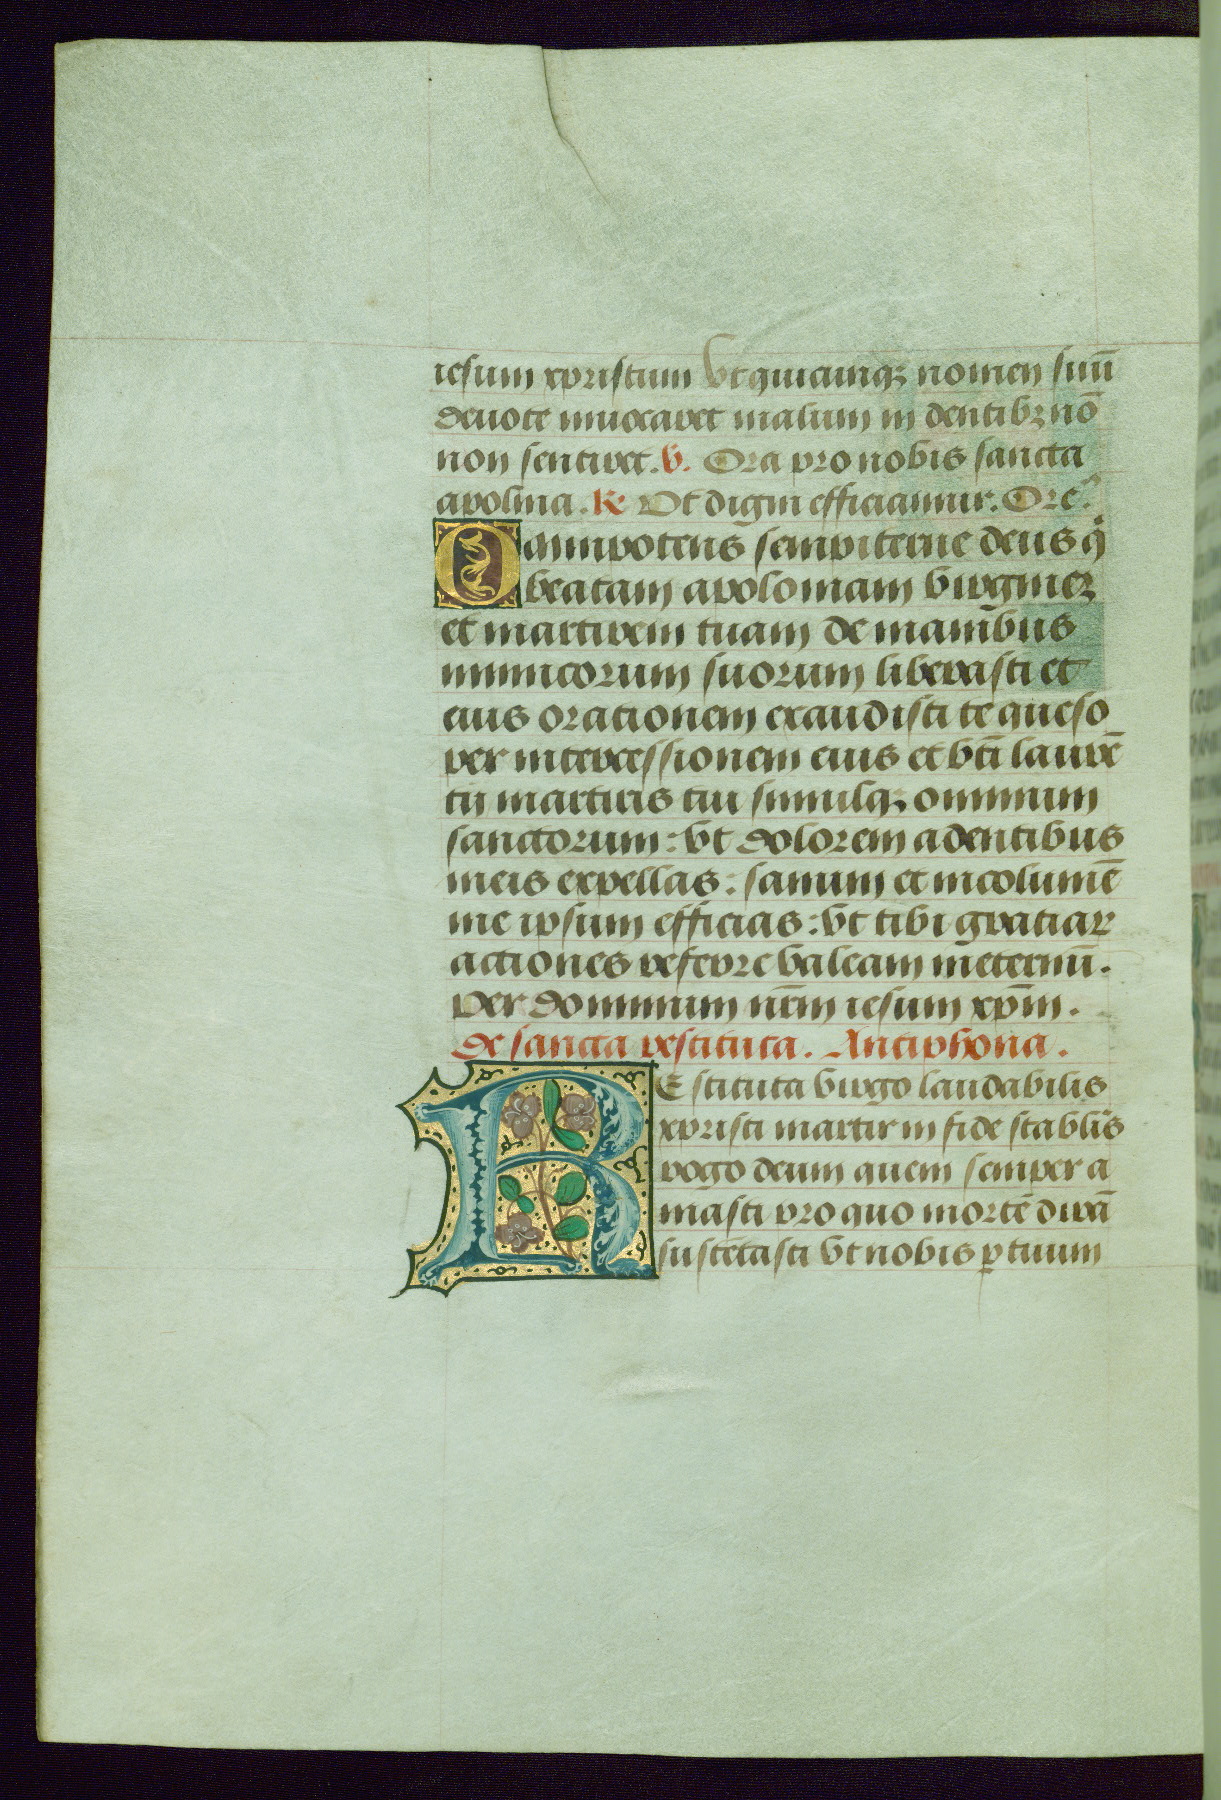 iesum xpristum Vt quicumqꝫ nomen suũ
deuote inuocaret malum in dentibꝫ nõ
non sentiret. V. Ora pro nobis sancta
apolina. R Vt digni efficiamur. Ore᷒
Omnipotens sempiterne deus q̃
beatam apoloniam virginez
et martirem tuam de manibus
inimicorum suorum liberasti et
eius orationem exaudisti te queso
per intercessionem eius et bt̃i laurẽ
tii martiris tui simulqꝫ omnium
sanctorum: vt dolorem a dentibus
meis expellas: sanum et incolumẽ
me ipsum efficias: vt tibi gratiar
actiones referre valeam ineternũ.
Per dominum nr̃m iesum xp̃m.
De sancta restituta. Antiphona.
REstituta virgo laudabilis
xpristi martir in fide stabilis
rogo deum quem semper a
masti pro quo mortẽ dirã
sustẽtasti Vt nobis ꝑ tuum